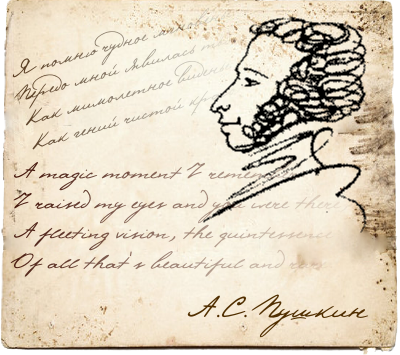 Я помню чудное мгнове
Передо мной явилась т
Как мимолетное виден
Как гений чистой кр
A magic moment I remem
I raised my eyes and you were there
A fleeting vision, the quintessence
Of all that's beautiful and
А.С. Пушкин